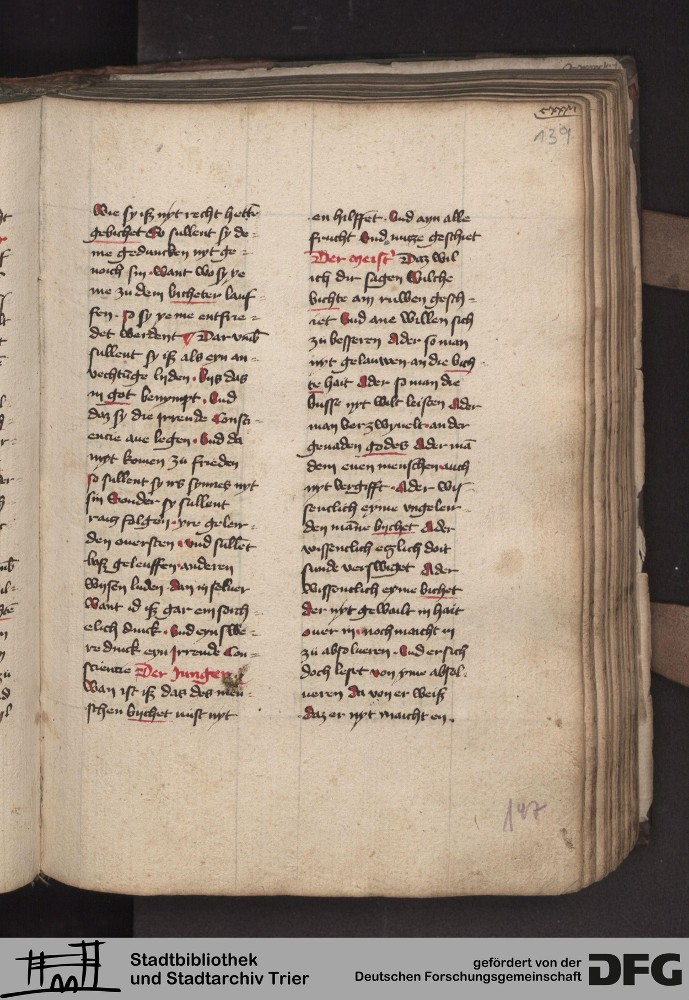 139
Wie sy iß nyt recht hettē
gebichet So sullent sy de-
me geduncken nyt ge-
noich sin. Want wo sy ye
me zu dem bichteter lauf-
fen. so sy ye me entfrie-
det werdent Dar vmb
sullent sy iß als eyn an-
vechtūge lyden. byß das
in got benympt. Vnd
daz sy die irrende Consci-
encie aue legen. Vnd da
nyt komen zu frieden
so sullent sy irs synnes nyt
sin Sonder sy sullent
raitz folgen. yre geleir-
den oversten. vnd sullēt
baß geleuffen. anderen
wysen luden. dan in selver
Want id iß gar ein sorch-
elich dinck. Vnd eyn swe-
re dinck eyn irrende Con-
sciencie Der Junger
Wan ist iß daz des men-
schen bychet nust nyt
en hilffet. Vnd ayn alle
frucht Vnd nutze geschiet
Der meist' Daz wil
ich dir sagen Wilche
bichte ain ruwen gesch-
iet Vnd ane willen sich
zu besseren Ader so man
nyt gelauwen an die bich-
te hait Ader so man die
busse nyt wilt leisten Ader
man verzwyuelt. an der
genaden godes Ader mā
dem euen menschen auch
nyt vergifft. Ader wis-
senclich eyme vngeleir-
den māne bychet Ader
wissenclich etzlich doit
sunde verswiget Ader
wissentlich eyme bychet
Der nyt gewailt in hait
ouer in. noch maicht in
zu absolueren. Vnd er sich
doch lesset von yme absol-
ueren Da von er weiß
Daz er nyt maicht en.
147
Stadtbibliothek
und Stadtarchiv Trier
gefördert von der
Deutschen Forschungsgemeinschaft
DFG